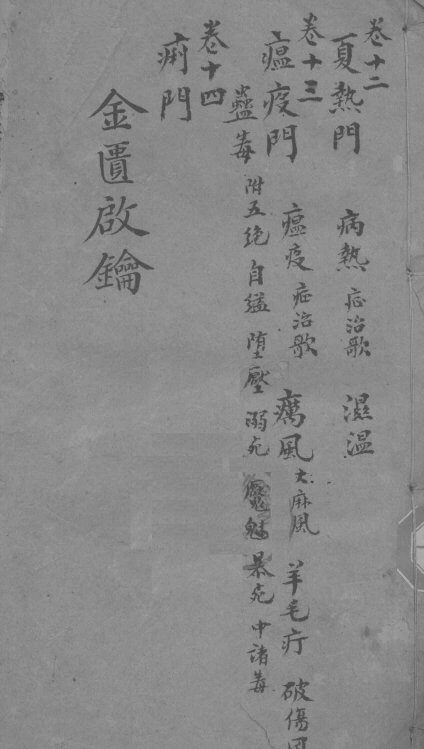 卷十二
夏熱門 病熱 症治歌 濕温
卷十三
瘟疫門 瘟疫 症治歌 癘風 大麻風 羊毛疔 破傷風
蠱毒 附五绝 自縊 墮壓 溺死 魘魅 暴死 中諸毒
卷十四
痢門
金匱啟鑰